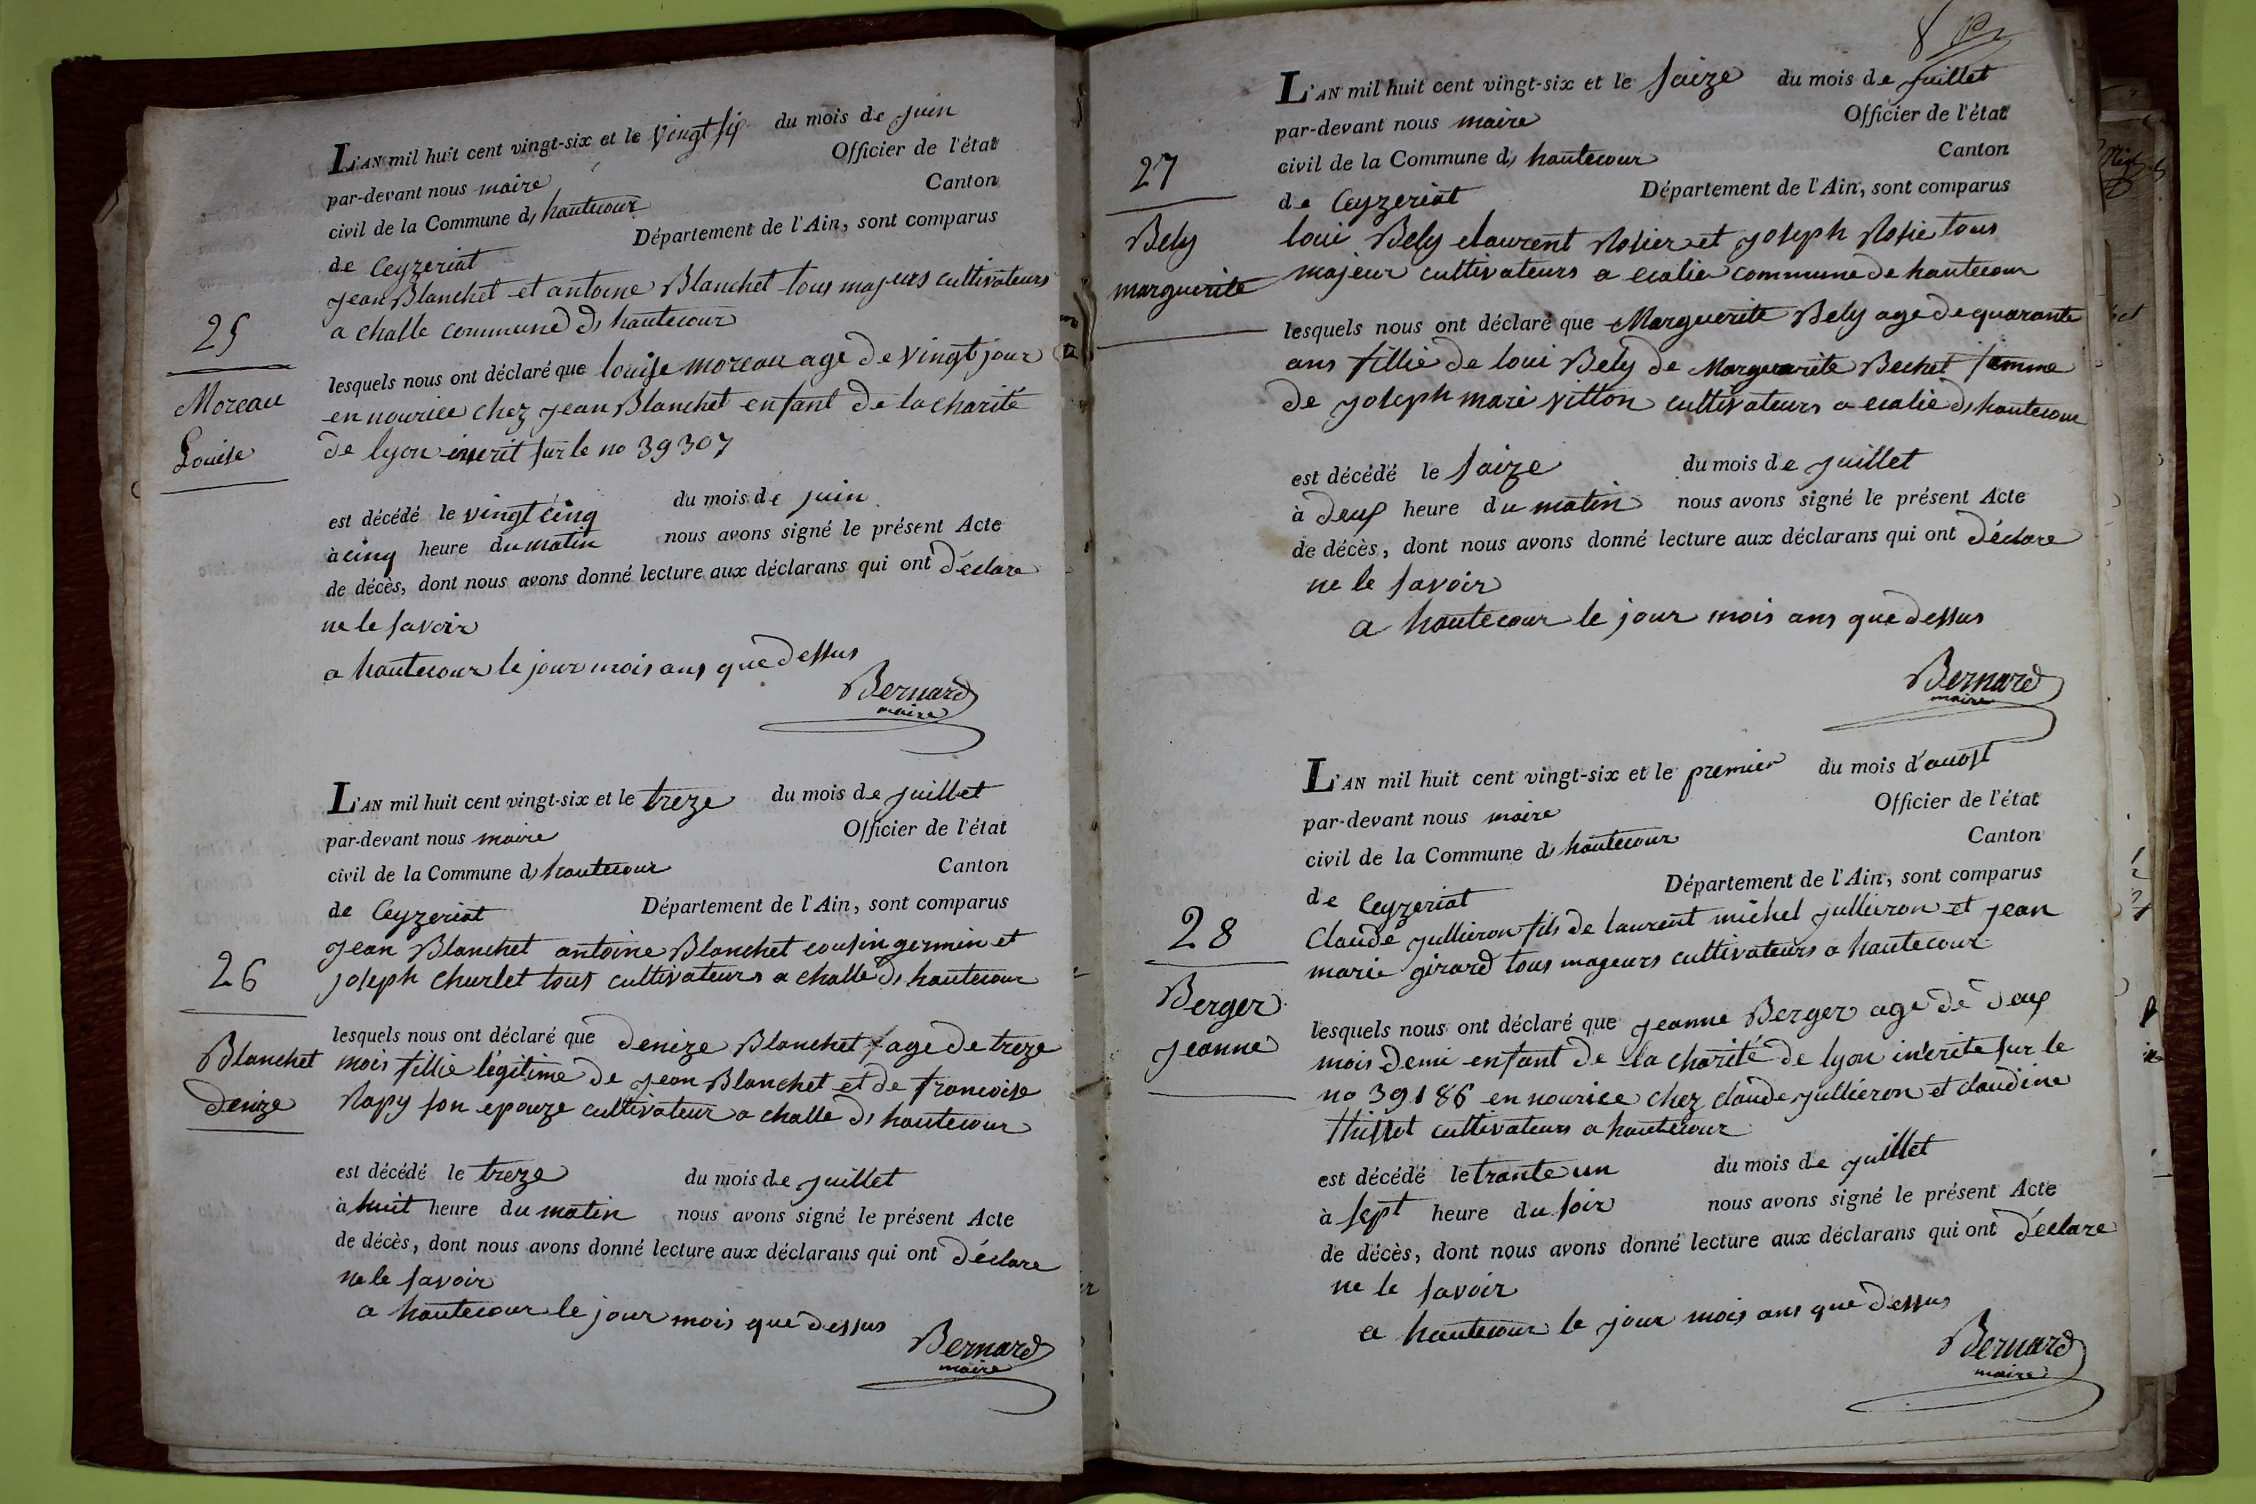 25
Moreau
Louise
L'AN mil huit cent vingt-six et le vingt six du mois de juin
par-devant nous maire Officier de l'état
civil de la Commune de hautecour Canton
de Ceyzeriat Département de l'Ain, sont comparus
jean Blanchet et antoine Blanchet tous majeurs cultivateurs
a challe commune de hautecour
lesquels nous ont déclaré que louise moreau age de vingt jour
en nourice chez jean Blanchet enfant de la charité
de lyon inscrit sur le no 39307
est décédé le vingt cinq du mois de juin
à cinq heure du matin nous avons signé le présent Acte
de décès, dont nous avons donné lecture aux déclarans qui ont déclare
ne le savoir
a hautecour le jour mois ans que dessus
Bernard
maire
26
Blanchet
denize
L'AN mil huit cent vingt-six et le treze du mois de juillet
par-devant nous maire Officier de l'état
civil de la Commune de hautecour Canton
de Ceyzeriat Département de l'Ain, sont comparus
jean Blanchet antoine Blanchet cousin germin et
joseph churlet tous cultivateurs a challe de hautecour
lesquels nous ont déclaré que denize Blanchet age de treze
mois fillie légitime de jean Blanchet et de francoise
Rapy son epouze cultivateur a challe de hautecour
est décédé le treze du mois de juillet
à huit heure du matin nous avons signé le présent Acte
de décès, dont nous avons donné lecture aux déclarans qui ont déclare
ne le savoir
a hautecour le jour mois que dessus
Bernard
maire
8
27
Bely
marguerite
L'AN mil huit cent vingt-six et le saize du mois de juillet
par-devant nous maire Officier de l'état
civil de la Commune de hautecour Canton
de Ceyzeriat Département de l'Ain, sont comparus
loui Bely elaurent Rosier et joseph Rosie tous
majeur cultivateurs a ecalie commune de hautecour
lesquels nous ont déclaré que Marguerite Bely age de quarante
ans fillie de loui Bely de Marguerite Bechet femme
de joseph marie vitton cultivateurs a ecalie de hautecour
est décédé le saize du mois de juillet
à deux heure du matin nous avons signé le présent Acte
de décès, dont nous avons donné lecture aux déclarans qui ont déclare
ne le savoir
a hautecour le jour mois ans que dessus
Bernard
maire
28
Berger
jeanne
L'AN mil huit cent vingt-six et le premier du mois d'auost
par-devant nous maire Officier de l'état
civil de la Commune de hautecour Canton
de Ceyzeriat Département de l'Ain, sont comparus
Claude jullieron fils de laurent michel jullieron et jean
marie girard tous mageurs cultivateurs a hautecour
lesquels nous ont déclaré que jeanne Berger age de deux
mois demi enfant de la charité de lyon inscrite sur le
no 39186 en nourice chez claude jullieron et claudine
thisset cultivateurs a hautecour
est décédé le trante un du mois de juillet
à sept heure du soir nous avons signé le présent Acte
de décès, dont nous avons donné lecture aux déclarans qui ont déclare
ne le savoir
a hautecour le jour mois ans que dessus
Bernard
maire